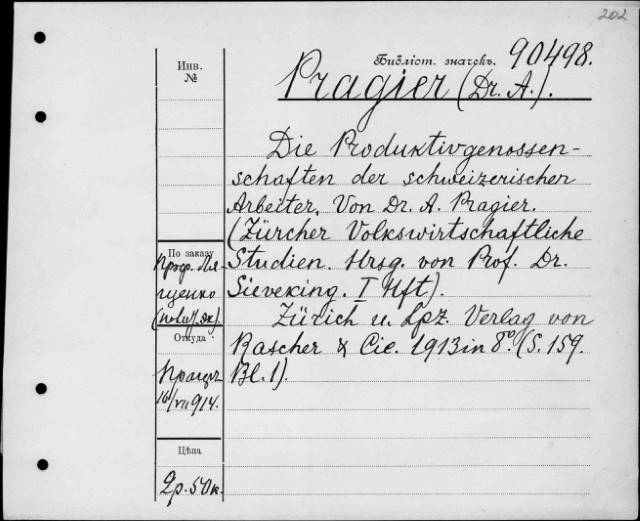 202
Библіот. значекъ. 90498.
Инв.
№
Pragier (Dr. A.).
Die Produktivgenossen-
schaften der schweizerischen
Arbeiter. Von Dr. A. Pragier.
(Zürcher Volkswirtschaftliche
Studien. Hrsg. von Prof. Dr.
Sieveking. I Hft).
Zürich u. Lpz. Verlag von
Rascher & Cie. 1913 in 8°. (S. 159.
Bl. 1).
По заказу
Проф. Ля-
щенко
Откуда
16/VII 914.
Цѣна
2р. 50к.